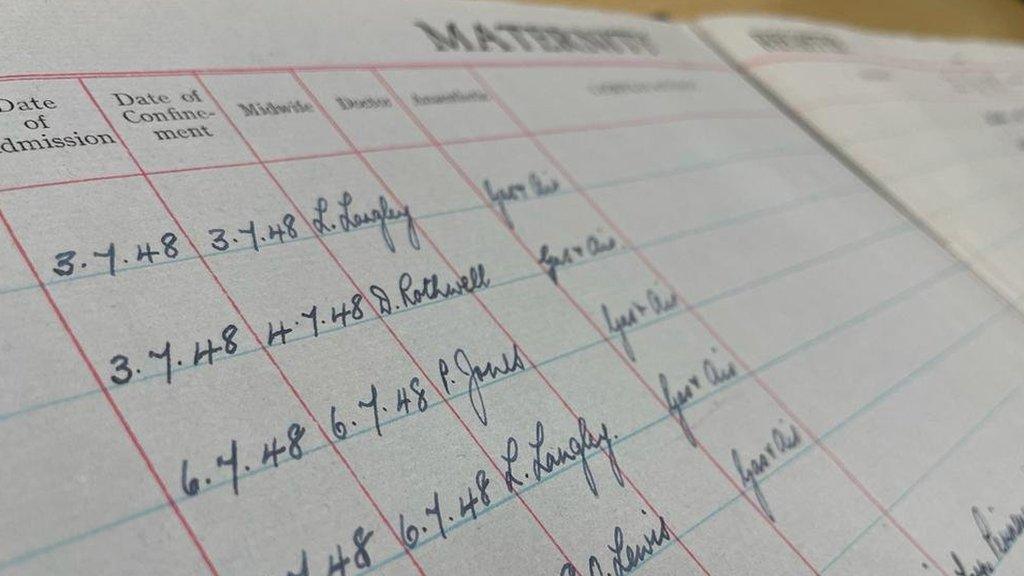 MATERNITY
Date of Admission Date of Confine-ment Midwife Doctor Anaesthetic
3.7.48 3.7.48 L. Langley Gas + Air
3.7.48 4.7.48 D. Rothwell Gas + Air
6.7.48 6.7.48 P. Jones Gas + Air
48 6.7.48 L. Langley. Gas + Air
Lewis Gas + Air